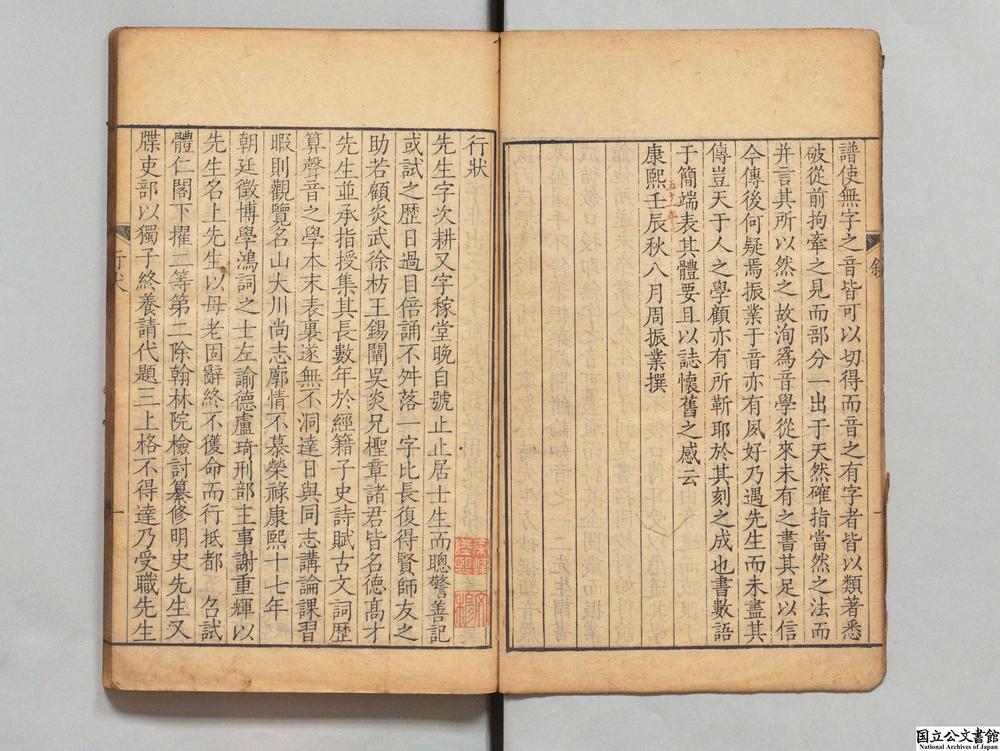 譜使無字之音皆可以切得而音之有字者皆以類著悉
破從前拘牽之見而部分一出于天然確指當然之法而
并言其所以然之故洵爲音學從來未有之書其足以信
今傳後何疑焉振業于音亦有夙好乃遇先生而未盡其
傳豈天于人之學顧亦有所靳耶於其刻之成也書數語
于簡端表其體要且以誌懷舊之感云
五十一年
康熙壬辰秋八月周振業撰
敘
行狀
先生字次耕又字稼堂晚自號止止居士生而聰警善記
或試之歷日過目倍誦不舛落一字比長復得賢師友之
助若顧炎武徐枋王錫闡吳炎兄檉章諸君皆名德高才
先生並承指授集其長數年於經籍子史詩賦古文詞歷
算聲音之學本末表裏遂無不洞達日與同志講論課習
暇則觀覽名山大川尚志廓情不慕榮祿康熙十七年
朝廷徵博學鴻詞之士左諭德盧琦刑部主事謝重輝以
先生名上先生以母老固辭終不獲命而行抵都 召試
體仁閣下擢二等第二除翰林院檢討纂修明史先生又
牒吏部以獨子終養請代題三上格不得達乃受職先生
行狀
一
国立公文書館
National Archives of Japan